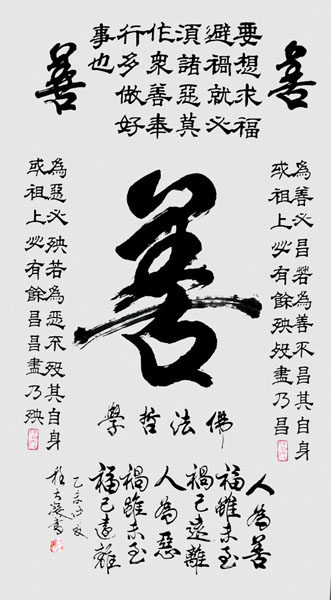 善
要想求福
避禍就必
須諸惡莫
作衆善奉
行多做好
事也
善
為善必昌若為善不昌其自身
或祖上必有餘殃殃盡乃昌
善
為惡必殃若為惡不殃其自身
或祖上必有餘昌昌盡乃殃
佛法哲學
人為善
福雖未至
禍已遠離
人為惡
禍雖未至
福已遠離
乙未